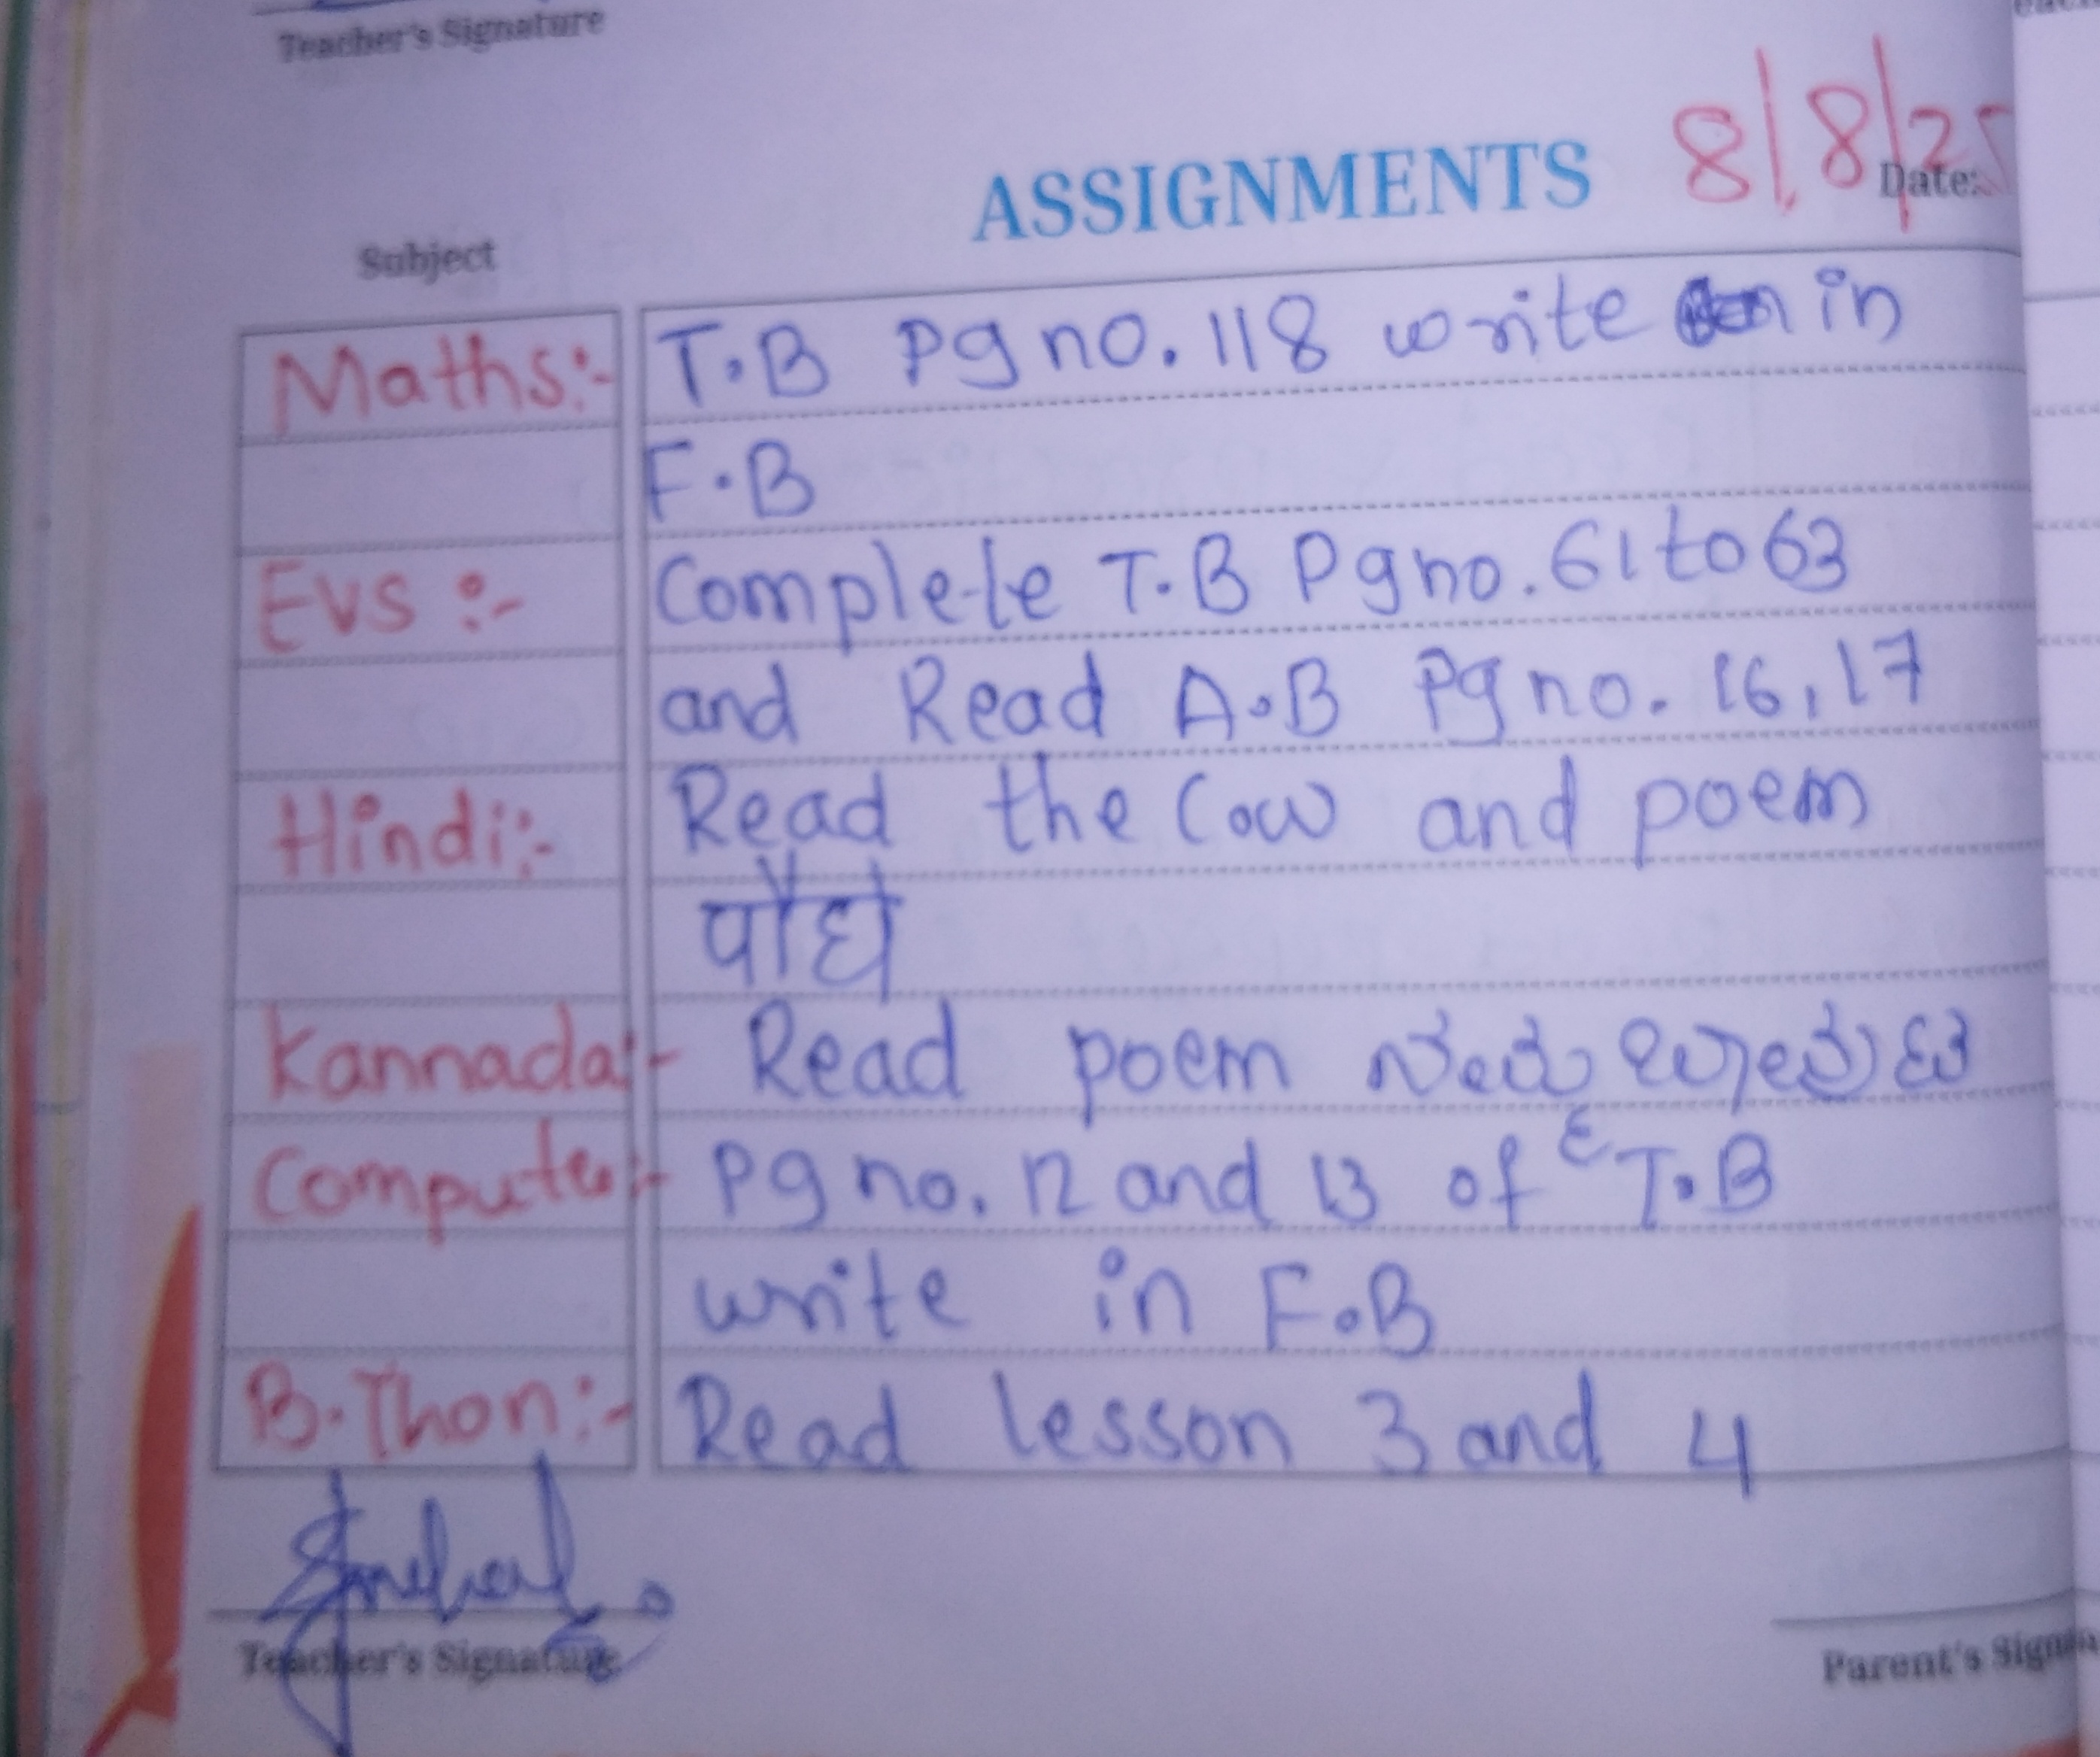 Teacher's Signature
ASSIGNMENTS 8/8/25
Date:
Subject
Maths:- T.B Pg no. 118 write in
F.B
Evs :- Complete T.B Pg no. 61 to 63
and Read A.B Pg no. 16, 17
Hindi:- Read the Cow and poem
पौधे
Kannada:- Read poem
Computer:- Pg no. 12 and 13 of T.B
write in F.B
B.Thon:- Read lesson 3 and 4
Teacher's Signature
Parent's